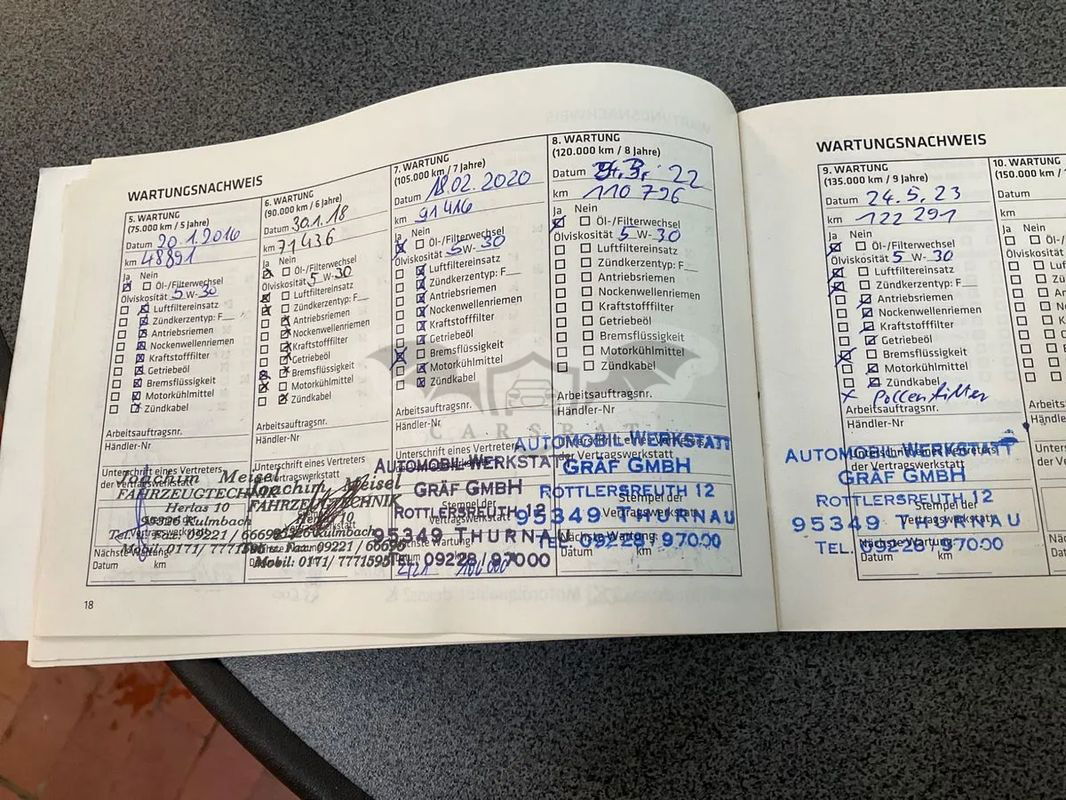 WARTUNGSNACHWEIS
5. WARTUNG
(75.000 km / 5 Jahre)
Datum 20.1.2016
km 48891
Ja Nein
Öl-/Filterwechsel
Ölviskosität 5 W-30
Luftfiltereinsatz
Zündkerzentyp: F
Antriebsriemen
Nockenwellenriemen
Kraftstofffilter
Getriebeöl
Bremsflüssigkeit
Motorkühlmittel
Zündkabel
Arbeitsauftragsnr.
Händler-Nr
Unterschrift eines Vertreters
der Vertragswerkstatt
Joachim Meisel
FAHRZEUGTECHNIK
Herlas 10
95326 Kulmbach
Tel. u. Fax: 09221 / 66696
Mobil: 0171/
Nächste Wartung:
Datum km
6. WARTUNG
(90.000 km / 6 Jahre)
Datum 30.1.18
km 71436
Ja Nein
Öl-/Filterwechsel
Ölviskosität 5 W-30
Luftfiltereinsatz
Zündkerzentyp: F
Antriebsriemen
Nockenwellenriemen
Kraftstofffilter
Getriebeöl
Bremsflüssigkeit
Motorkühlmittel
Zündkabel
Arbeitsauftragsnr.
Händler-Nr
Unterschrift eines Vertreters
Joachim Meisel
FAHRZEUGTECHNIK
95326 Kulmbach
Tel. u. Fax: 09221 / 66696
Mobil: 0171/ 7771595
Datum km
7. WARTUNG
(105.000 km / 7 Jahre)
Datum 18.02.2020
km 91416
Ja Nein
Öl-/Filterwechsel
Ölviskosität 5 W-30
Luftfiltereinsatz
Zündkerzentyp: F
Antriebsriemen
Nockenwellenriemen
Kraftstofffilter
Getriebeöl
Bremsflüssigkeit
Motorkühlmittel
Zündkabel
Arbeitsauftragsnr.
Händler-Nr
Unterschrift eines Vertreters
AUTOMOBIL-WERKSTATT
GRÄF GMBH
Stempel der
ROTTLERSREUTH 12
Vertragswerkstatt
95349 THURNAU
Nächste Wartung:
TEL. 09228 / 97000
Datum km
8. WARTUNG
(120.000 km / 8 Jahre)
Datum 22
km 110796
Ja Nein
Öl-/Filterwechsel
Ölviskosität 5 W-30
Luftfiltereinsatz
Zündkerzentyp: F
Antriebsriemen
Nockenwellenriemen
Kraftstofffilter
Getriebeöl
Bremsflüssigkeit
Motorkühlmittel
Zündkabel
Arbeitsauftragsnr.
Händler-Nr
AUTOMOBIL-WERKSTATT
der Vertragswerkstatt
GRÄF GMBH
ROTTLERSREUTH 12
Stempel der
Vertragswerkstatt
95349 THURNAU
Nächste Wartung:
TEL. 09228 / 97000
Datum km
18
CARSBAT
WARTUNGSNACHWEIS
9. WARTUNG
(135.000 km / 9 Jahre)
Datum 24.5.23
km 122291
Ja Nein
Öl-/Filterwechsel
Ölviskosität 5 W-30
Luftfiltereinsatz
Zündkerzentyp: F
Antriebsriemen
Nockenwellenriemen
Kraftstofffilter
Getriebeöl
Bremsflüssigkeit
Motorkühlmittel
Zündkabel
x Pollenfilter
Arbeitsauftragsnr.
Händler-Nr
AUTOMOBIL-WERKSTATT
der Vertragswerkstatt
GRÄF GMBH
ROTTLERSREUTH 12
Stempel der
Vertragswerkstatt
95349 THURNAU
Nächste Wartung:
TEL. 09228 / 97000
Datum km
10. WARTUNG
(150.000 km /
Datum
km
Ja Nein
Öl-/
Ölviskosität
Luft
Zünd
Antr
Nock
Kraf
Getr
Bren
Moto
Zün
Arbeitsauftra
Händler-Nr
Unterschrift
der Vertrags
Nächste Wa
Datum